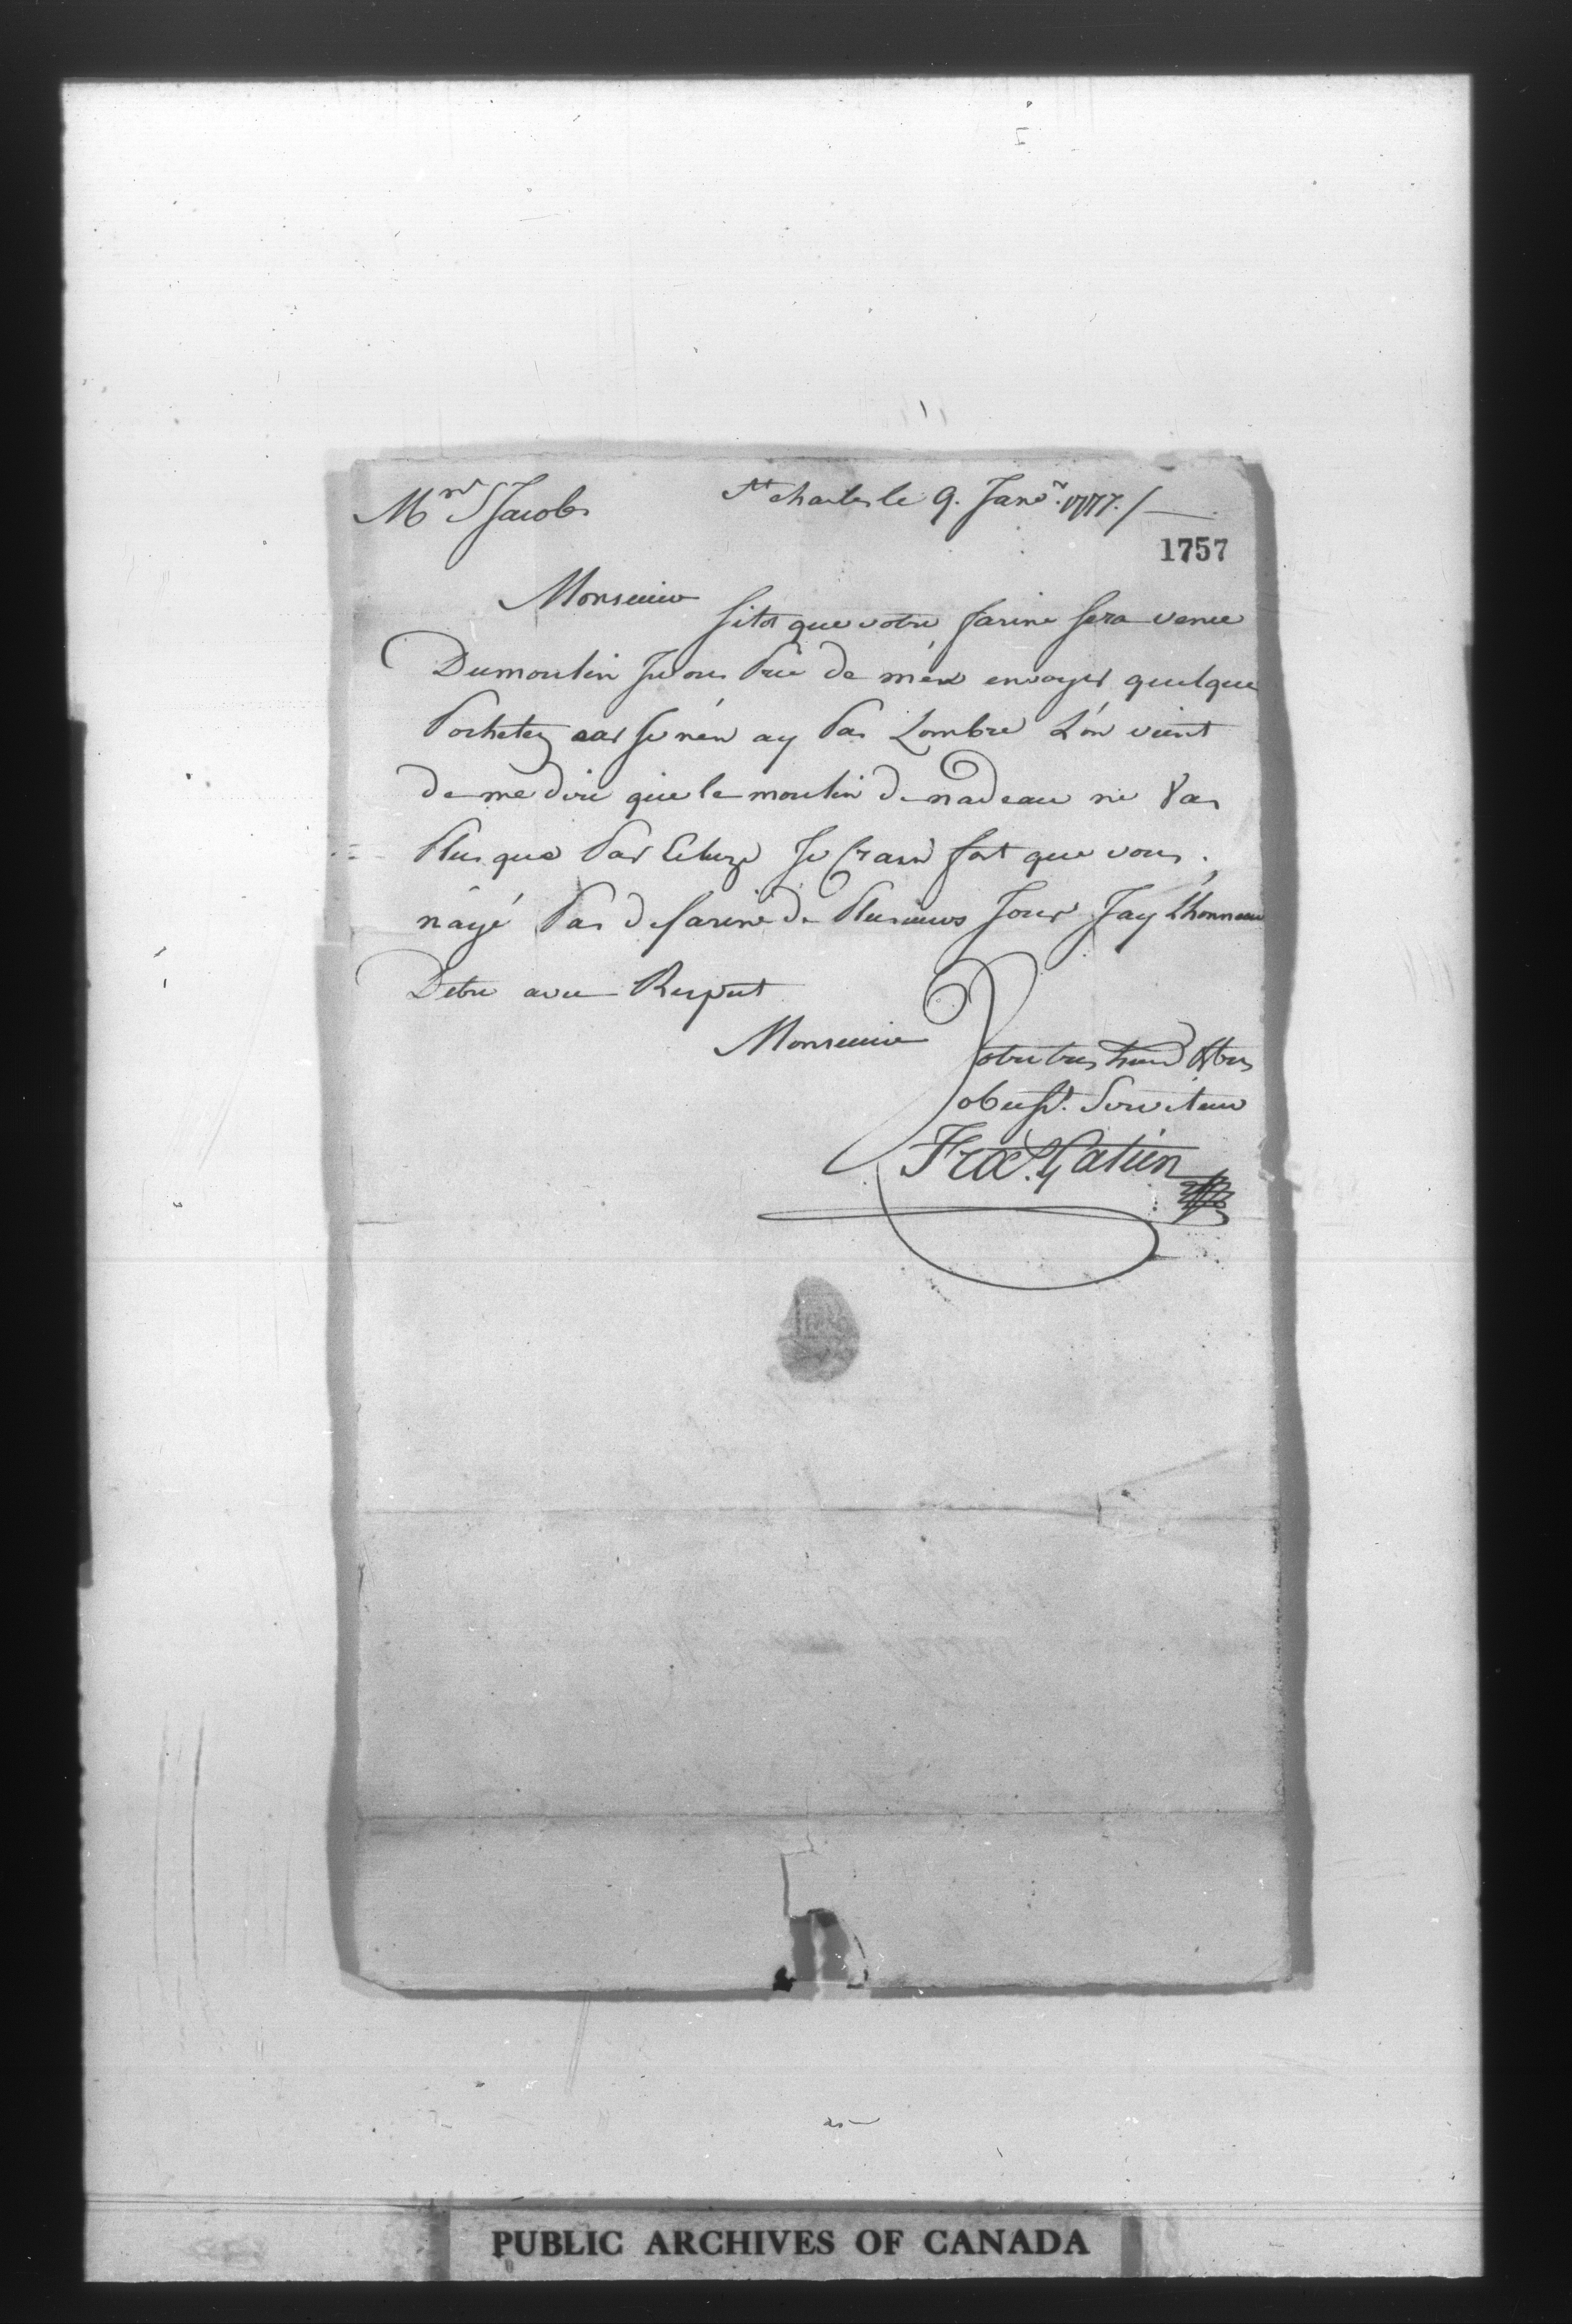 Mr S Jacobs
St charles le 9. Janv. 1777./
1757
Monsieur
sitot que votre farine sera venue
Dumoulin Je vous Prie de m'en envoyer quelque
Pochetez car Je n'en ay Pas Lombre L'on vient
de me dire que le moulin de nadeau ne Vas
Plus que Par Ecluze Je Crain fort que vous
nayé Pas de farine de Plusieurs Jour J'ay L'honneur
Detre avec Respect
Monsieur
Votre tres humb &tres
obeist. Serviteur
Frac. Gatien
PUBLIC ARCHIVES OF CANADA